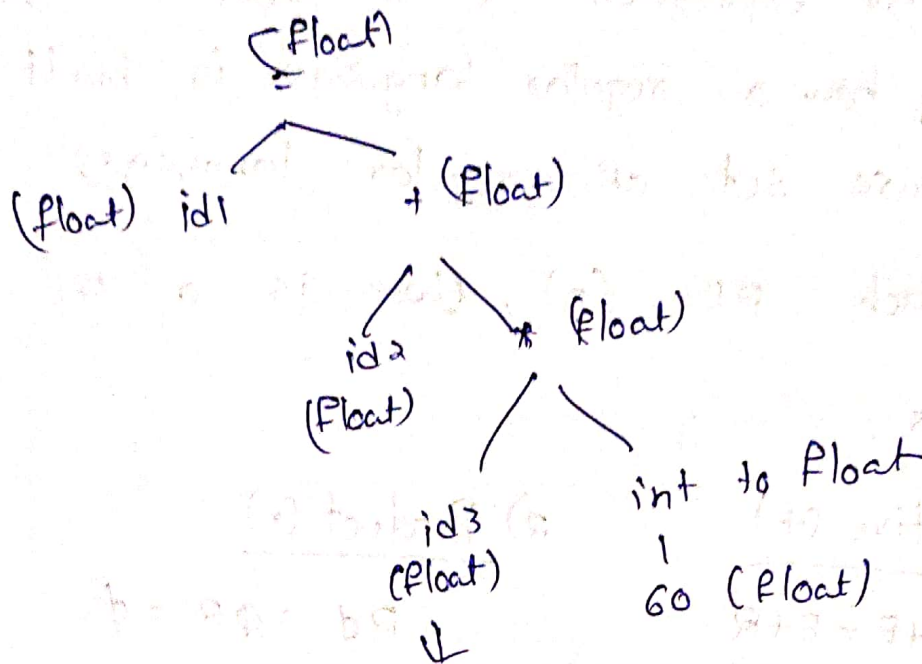 (float)
=
(float) id1 + (float)
id2 * (float)
(float)
id3 int to float
(float) 60 (float)